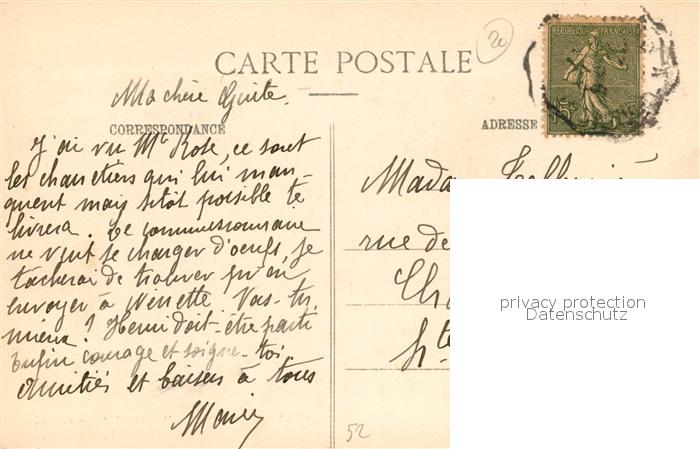 20
CARTE POSTALE
REPUBLIQUE FRANÇAISE
15c
Ma chère
CORRESPONDANCE
ADRESSE
J'ai vu Mr Rose, ce sont
les chantiers qui lui man-
quent mais sitôt possible te
livrera. Le commissionnaire
ne veut se charger d'oeufs, je
tacherai de trouver qu'en
envoyer à Vas-tu
mieux? Henri doit-être parti
Enfin courage et soigne-toi
Amitiés et baisers à tous
Marie
Madame
rue de
Ch
Hte
52
privacy protection
Datenschutz